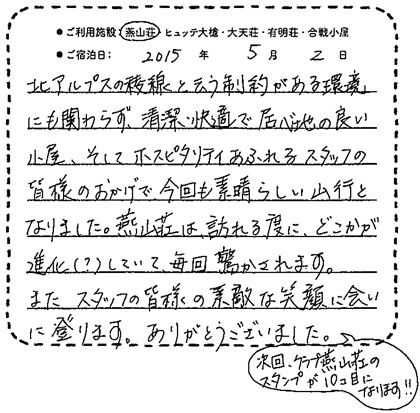 ●ご利用施設：燕山荘・ヒュッテ大槍・大天荘・有明荘・合戦小屋
●ご宿泊日： 2015 年 5 月 2 日
北アルプスの稜線と云う制約がある環境
にも関わらず、清潔・快適で居心地の良い
小屋、そしてホスピタリティあふれるスタッフの
皆様のおかげで、今回も素晴らしい山行と
なりました。燕山荘は、訪れる度に、どこかが
進化(？)していて、毎回驚かされます。
また スタッフの皆様の素敵な笑顔に会い
に登ります。ありがとうございました。
次回、クラブ燕山荘の
スタンプが10コ目に
なります!!